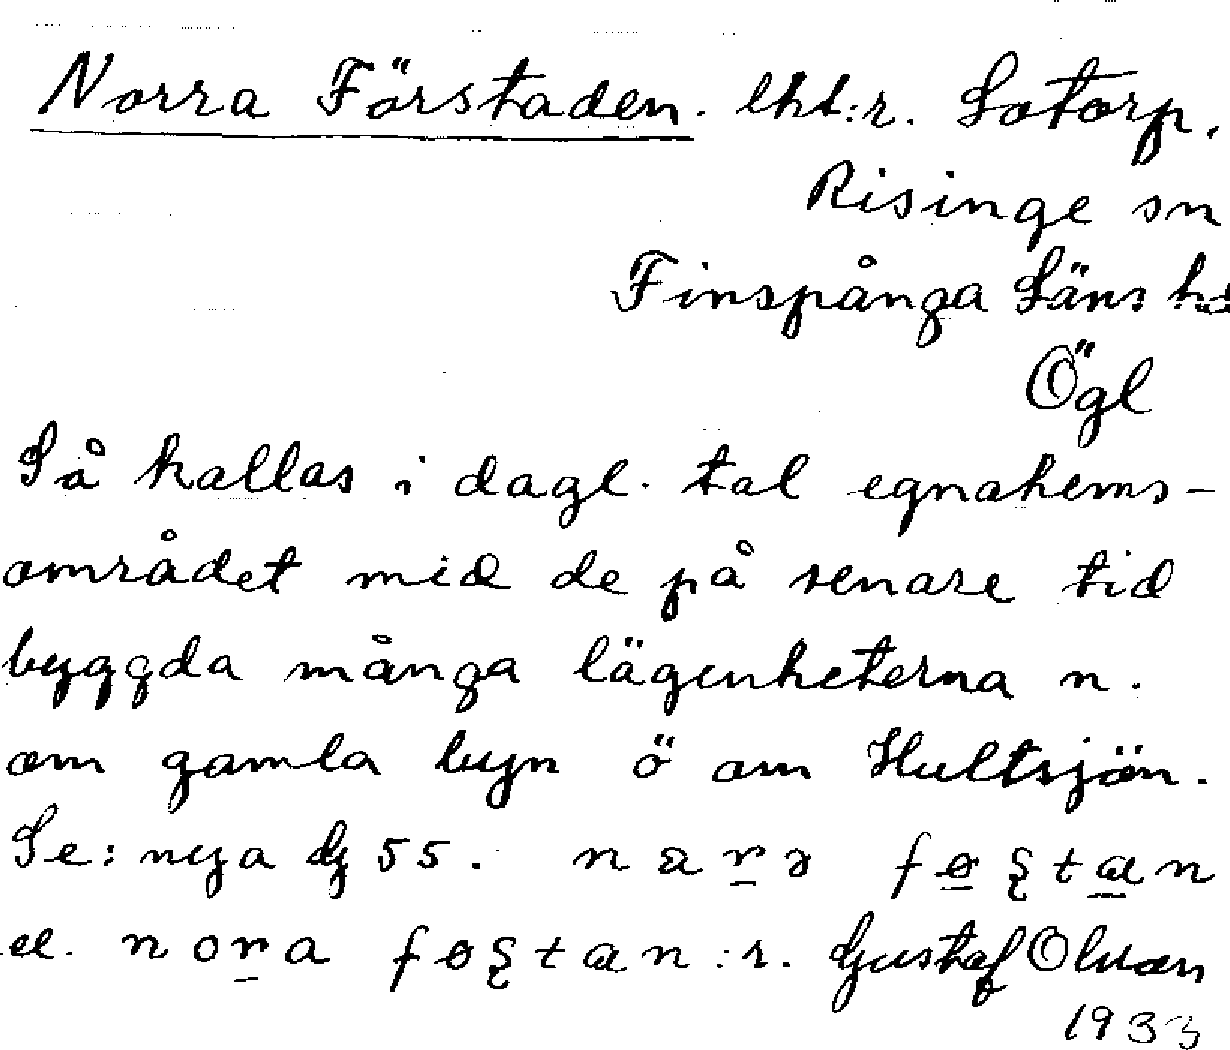 Norra Förstaden. lht:r. Sotorp.
Risinge sn
Finspånga Läns hd
Ögl
Så kallas i dagl. tal egnahems-
området mid de på senare tid
byggda många lägenheterna n.
om gamla byn ö om Hultsjön.
Se: nya Gj 55.
el. :r. Gustaf Olsson
1933